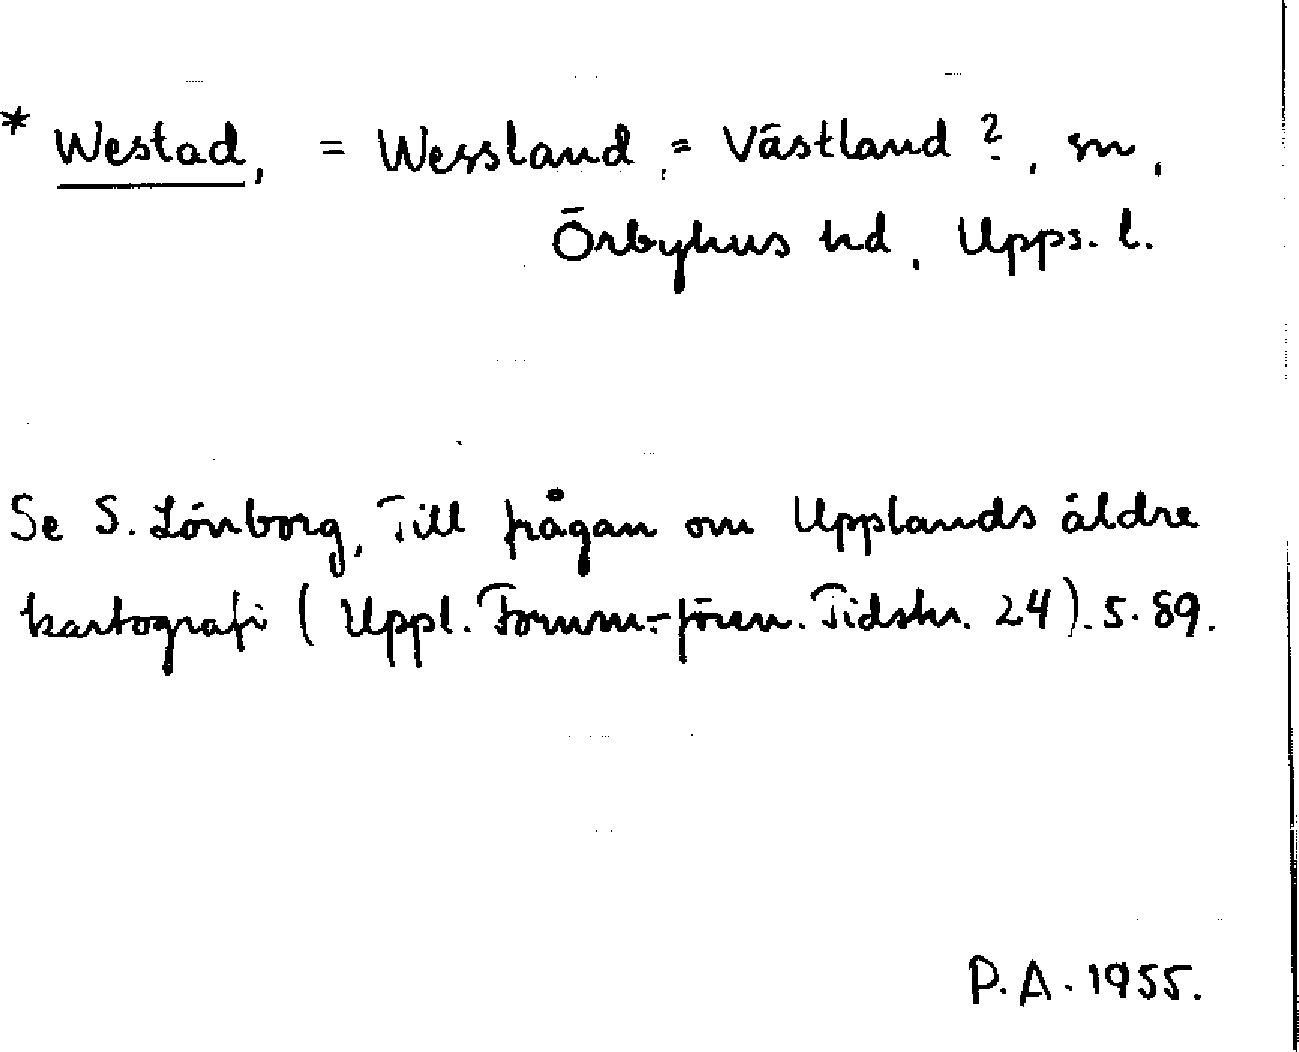 * Westad, = Wessland, = Västland ?, sn,
Örbyhus hd, Upps. l.
Se S. Lönborg, Till frågan om Upplands äldre
kartografi (Uppl. Fornm.-fören. Tidskr. 24). s. 89.
P. A. 1955.